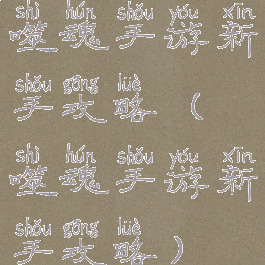 shì hún shǒu yóu xīn
噬魂手游新
shǒu gōng lüè
手攻略（
shì hún shǒu yóu xīn
噬魂手游新
shǒu gōng lüè
手攻略）